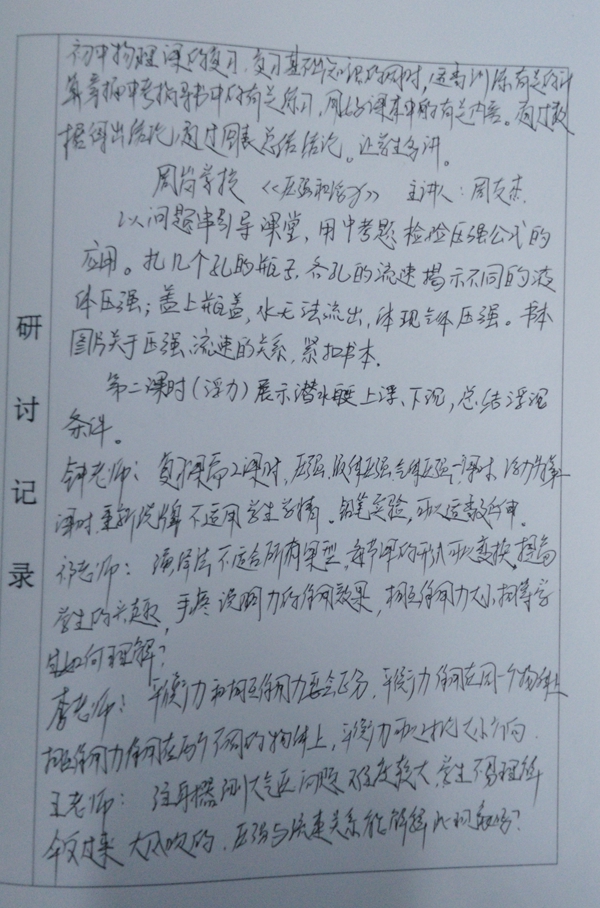 研讨记录
初中物理课的复习，复习基础知识的同时，适当训练有关的计
算掌握中考指导书中的有关练习，用好课本中的有关内容。通过数
据得出结论，通过图表总结结论。让学生多讲。
周岗学校 《压强和浮力》 主讲人：周友杰
以问题串引导课堂，用中考题检验压强公式的
应用。扎几个孔的瓶子，各孔的流速揭示不同的液
体压强；盖上瓶盖，水无法流出，体现气体压强。书本
图片关于压强、流速的关系，紧扣书本.
第二课时（浮力）展示潜水艇上浮、下沉，总结浮沉
条件。
钟老师：复习课需2课时，压强、液体压强、气体压强一课时，浮力为第
课时.重新洗牌不适用学生学情。铅笔实验，可以适当延伸.
老师：演绎法不适合所有课型，每节课的形式可以变换，提高
学生的兴趣，手疼说明力的作用效果，相互作用力大小相等学
生如何理解？
李老师：平衡力和相互作用力要会区分，平衡力作用在同一个物体上
相互作用力作用在两个不同的物体上，平衡力可以讨论大小方向.
王老师：注射器测大气压问题难度较大，学生不易理解
伞反过来 大风吹的，压强与流速关系能解释此现象吗？